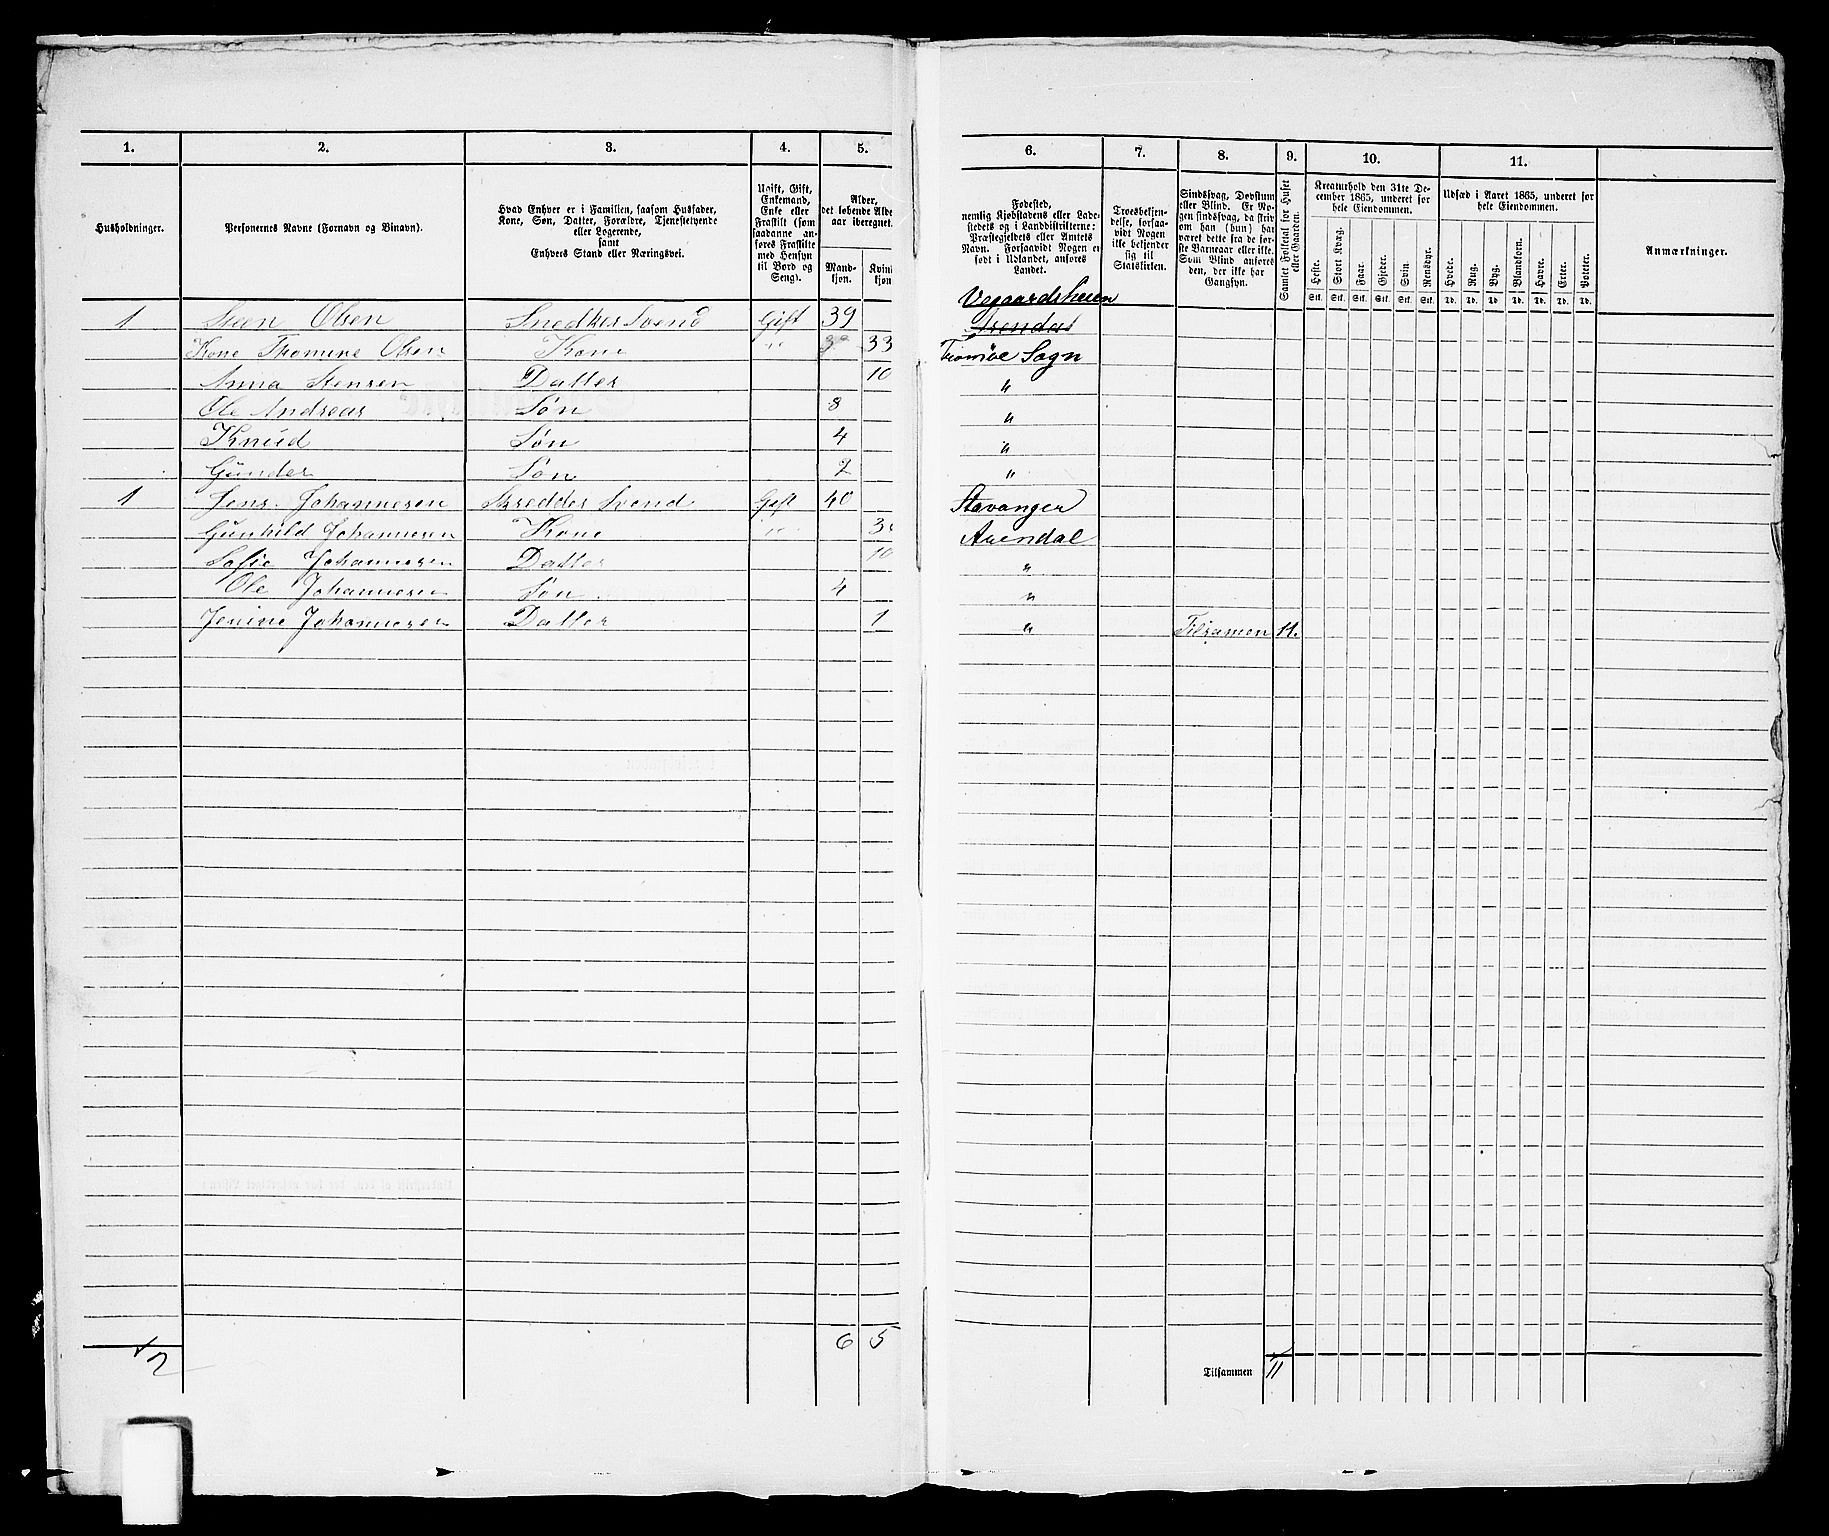 1. 2. 3. 4. 5. 6. 7. 8. 9. 10. 11.
Husholdninger.
Personernes Navne (Fornavn og Binavn).
Hvad Enhver er i Familien, saasom Husfader,
Kone, Søn, Datter, Forældre, Tjenestetyende
eller Logerende,
samt
Enhvers Stand eller Næringsvei.
Ugift, Gift,
Enkemand,
Enke eller
Fraskilt (som
saadanne an-
føres Fraskilte
med Hensyn
til Bord og
Seng).
Alder,
det løbende Alders-
aar iberegnet.
Mand-
kjøn.
Kvinde-
kjøn.
Fødested,
nemlig Kjøbstadens eller Lade-
stedets og i Landdistrikterne:
Præstegjeldets eller Amtets
Navn. Forsaavidt Nogen er
født i Udlandet, anføres
Landet.
Troesbekjen-
delse, forsaa-
vidt Nogen
ikke bekjender
sig til
Statskirken.
Sindssvag, Døvstum
eller Blind. Er No-
gen sindssvag, da skriv
om han (hun) har
været dette fra de før-
ste Barneaar eller ikke.
Som Blind anføres
den, der ikke har
Gangsyn.
Samlet Folketal for Huset
eller Gaarden.
Kreaturhold den 31te De-
cember 1865, underet for
hele Eiendommen.
Heste. Stort Kvæg. Faar. Gjeder. Svin. Rensdyr.
Stk. Stk. Stk. Stk. Stk. Stk.
Udsæd i Aaret 1865, underet for
hele Eiendommen.
Hvede. Rug. Byg. Blandkorn. Havre. Erter. Poteter.
Td. Td. Td. Td. Td. Td. Td.
Anmærkninger.
Vegaardsheien
1 Steen Olsen Snedker Svend Gift 39 Arendal
Kone Thomine Olsen Kone " 33 Tromøe Sogn
Anna Stensen Datter 10 "
Ole Andreas Søn 8 "
Knud Søn 4 "
Günder Søn 2 "
1 Jens Johannesen Skredder Svend Gift 40 Stavanger
Gunhild Johannesen Kone " Arendal
Sofie Johannesen Datter 10 "
Ole Johannesen Søn 4 "
Jenine Johannesen Datter 1 " Tilsamen 11.
2 6 5
Tilsammen 11